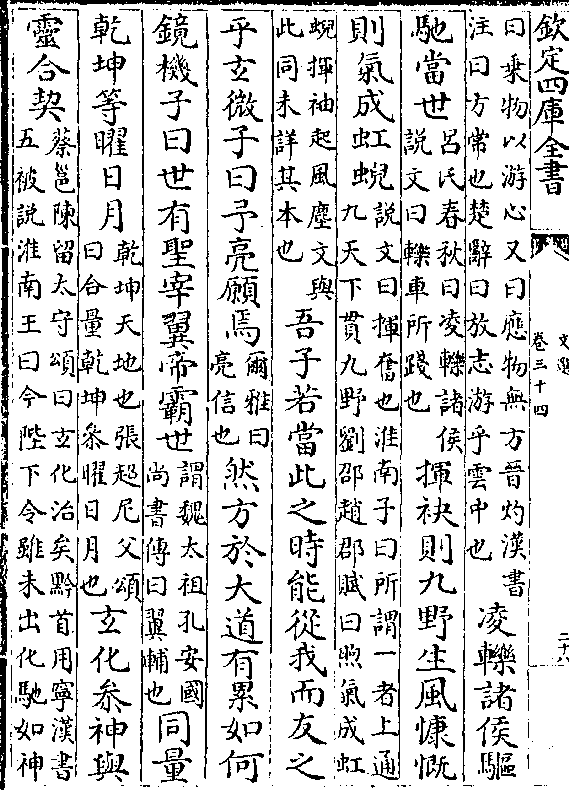 欽定四庫全書
文選
卷三十四
二十八
曰乗物以游心又曰應物無方晉灼漢書
注曰方常也楚辭曰放志游乎雲中也
凌轢諸侯驅
馳當世
吕氏春秋曰凌轢諸侯
説文曰轢車所踐也
揮袂則九野生風慷慨
則氣成虹蜺
説文曰揮奮也淮南子曰所謂一者上通
九天下貫九野劉邵趙郡賦曰煦氣成虹
蜺揮袖起風塵文與
此同未詳其本也
吾子若當此之時能從我而友之
乎玄微子曰予亮願焉
爾雅曰
亮信也
然方於大道有累如何
鏡機子曰世有聖宰翼帝霸世
謂魏太祖孔安國
尚書傳曰翼輔也
同量
乾坤等曜日月
乾坤天地也張超尼父頌
曰合量乾坤叅曜日月也
玄化叅神與
靈合契
蔡邕陳留太守頌曰玄化洽矣黔首用寧漢書
五被説淮南王曰今陛下令雖未出化馳如神